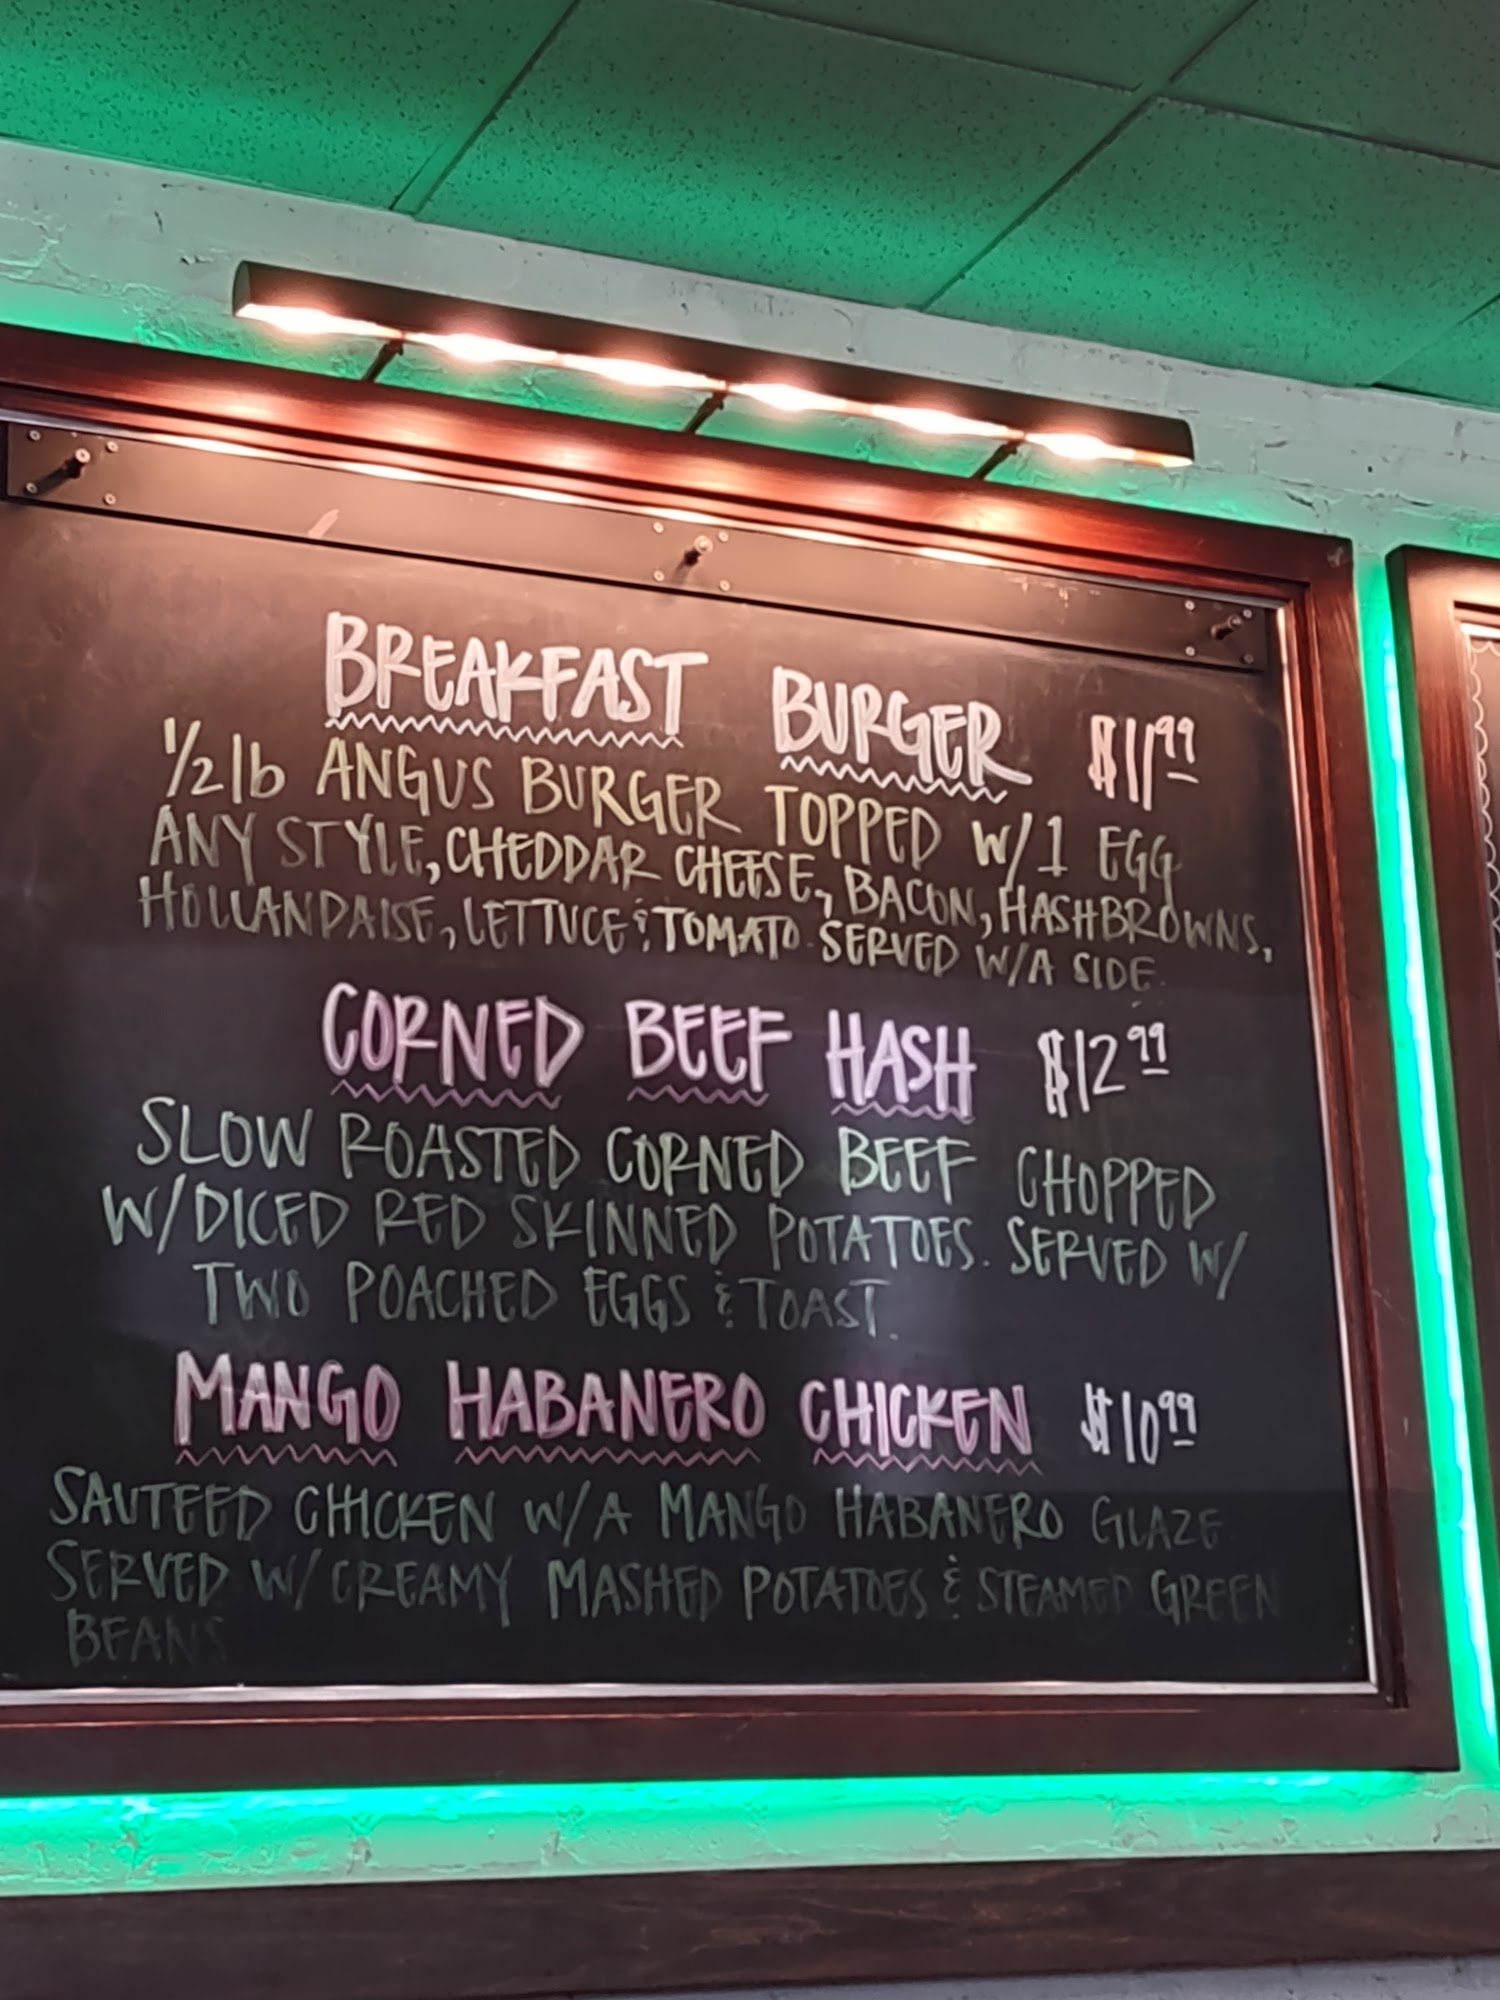 BREAKFAST BURGER $11.99
1/2 lb ANGUS BURGER TOPPED W/1 EGG
ANY STYLE, CHEDDAR CHEESE, BACON, HASHBROWNS,
HOLLANDAISE, LETTUCE & TOMATO. SERVED W/A SIDE.
CORNED BEEF HASH $12.99
SLOW ROASTED CORNED BEEF CHOPPED
W/DICED RED SKINNED POTATOES. SERVED W/
TWO POACHED EGGS & TOAST.
MANGO HABANERO CHICKEN $10.99
SAUTEED CHICKEN W/A MANGO HABANERO GLAZE.
SERVED W/ CREAMY MASHED POTATOES & STEAMED GREEN
BEANS